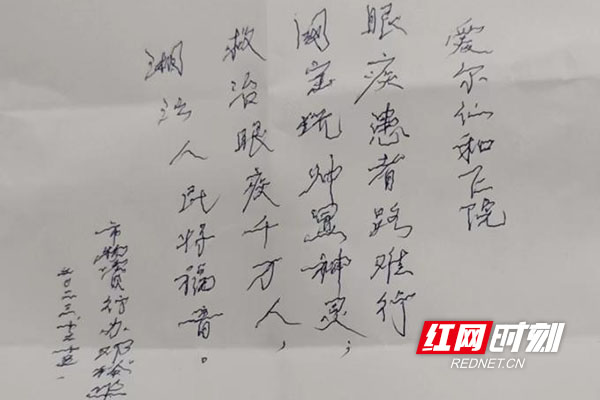 爱尔仁和医院
眼疾患者路难行
国宝锐帅显神灵；
救治眼疫千万人，
湘江人民将福音。
市物资行办邓
红网时刻
REDNET.CN